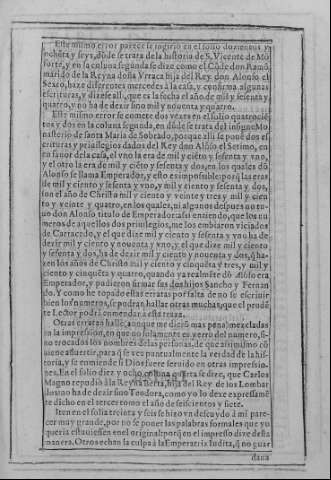 Este mismo error parece se ingirio en el folio dozientos y
nchẽta y seys, dõde se trata de la historia de S. Vicente de Mõ
forte, y en la coluna segunda se dize como el Cõde don Ramõ
marido de la Reyna doña Vrraca hija del Rey don Alonso el
Sexto, haze diferentes mercedes à la casa, y confirma algunas
escrituras, y dizese alli, que es la fecha el año de mil y sesenta y
quatro, y no ha de dezir sino mil y nouenta y quatro.
Este mismo error se comete dos vezes en el folio quatrociẽ
tos y dos en la coluna segunda, en dõde se trata del insigne Mo
nasterio de santa Maria de Sobrado, porque alli se ponẽ dos es
crituras y priuilegios dados del Rey don Alõso el Setimo, en
en fauor dela casa, el vno la era de mil y ciẽto y sesenta y vno,
y el otro la era de mil y ciẽto y sesenta y dos, en los quales dõ
Alonso se llama Emperador, y esto es imposible: porq̃ las eras
de mil y ciento y sesenta y vno, y mil y ciento y sesenta y dos,
son el año de Christo mil y ciento y veinte y tres y mil y cien
to y veinte y quatro, en los quales, ni algunos despues no tu-
uo don Alonso titulo de Emperador: assi entiendo, que los nu
meros de aquellos dos priuilegios, me los embiaron viciados
de Carracedo, y el que dize mil y ciento y sesenta y vno ha de
dezir mil y ciento y nouenta y vno, y el que dize mil y ciento
y sesenta y dos, ha de dezir mil y ciento y nouenta y dos, q̃ ha-
zen los años de Christo mil y ciento y cinquẽta y tres, y mil y
ciento y cinquẽta y quatro, quando ya realmẽte dõ Alõso era
Emperador, y pudieron firmar sus dos hijos Sancho y Fernan
do. Y como he topado estas erratas por falta de no se escriuir
bien los numeros, se podran hallar otras muchas, que el prudẽ
te Lector podrà enmendar à esta traza.
Otras erratas hallè, aunque me dierõ mas pena, mezcladas
en la impression, en que no solamente en yerro del numero, si-
no trocados los nombres de las personas, de que asimismo cõ
uiene aduertir, para q̃ se vea puntualmente la verdad de la his-
toria, y se remiende si Dios fuere seruido en otras impressio-
nes. En el folio diez y ocho coluna quarta se dize, que Carlos
Magno repudiò à la Reyna Berta, hija del Rey de los Lombar
dos no ha de dezir sino Teodora, como yo lo dexe expressamẽ
te dicho en el tercer tomo el año de seiscientos y siete.
Iten en el folia treinta y seis se hizo vn descuydo à mi pare-
cer muy grande, por no se poner las palabras formales que yo
queria estuuiessen en el original: porq̃ en el impresso dize desta
manera. Otros echan la culpa à la Emperatrix Iudita, q̃ no guar
daua